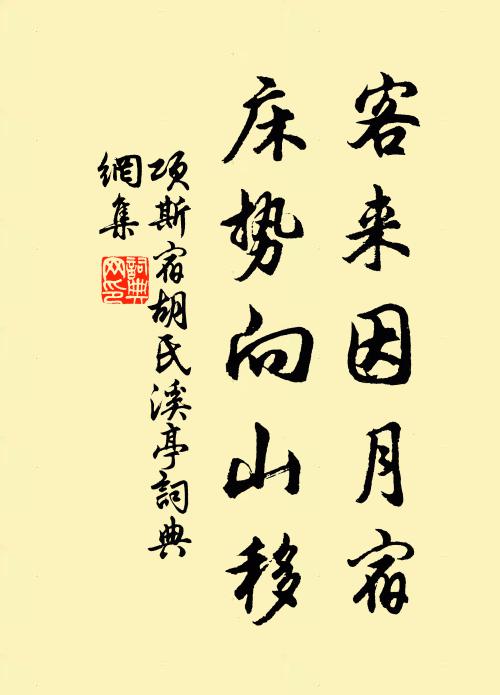 客来因月宿
床势向山移
项斯宿胡氏溪亭詞典
網集
詞典
网印